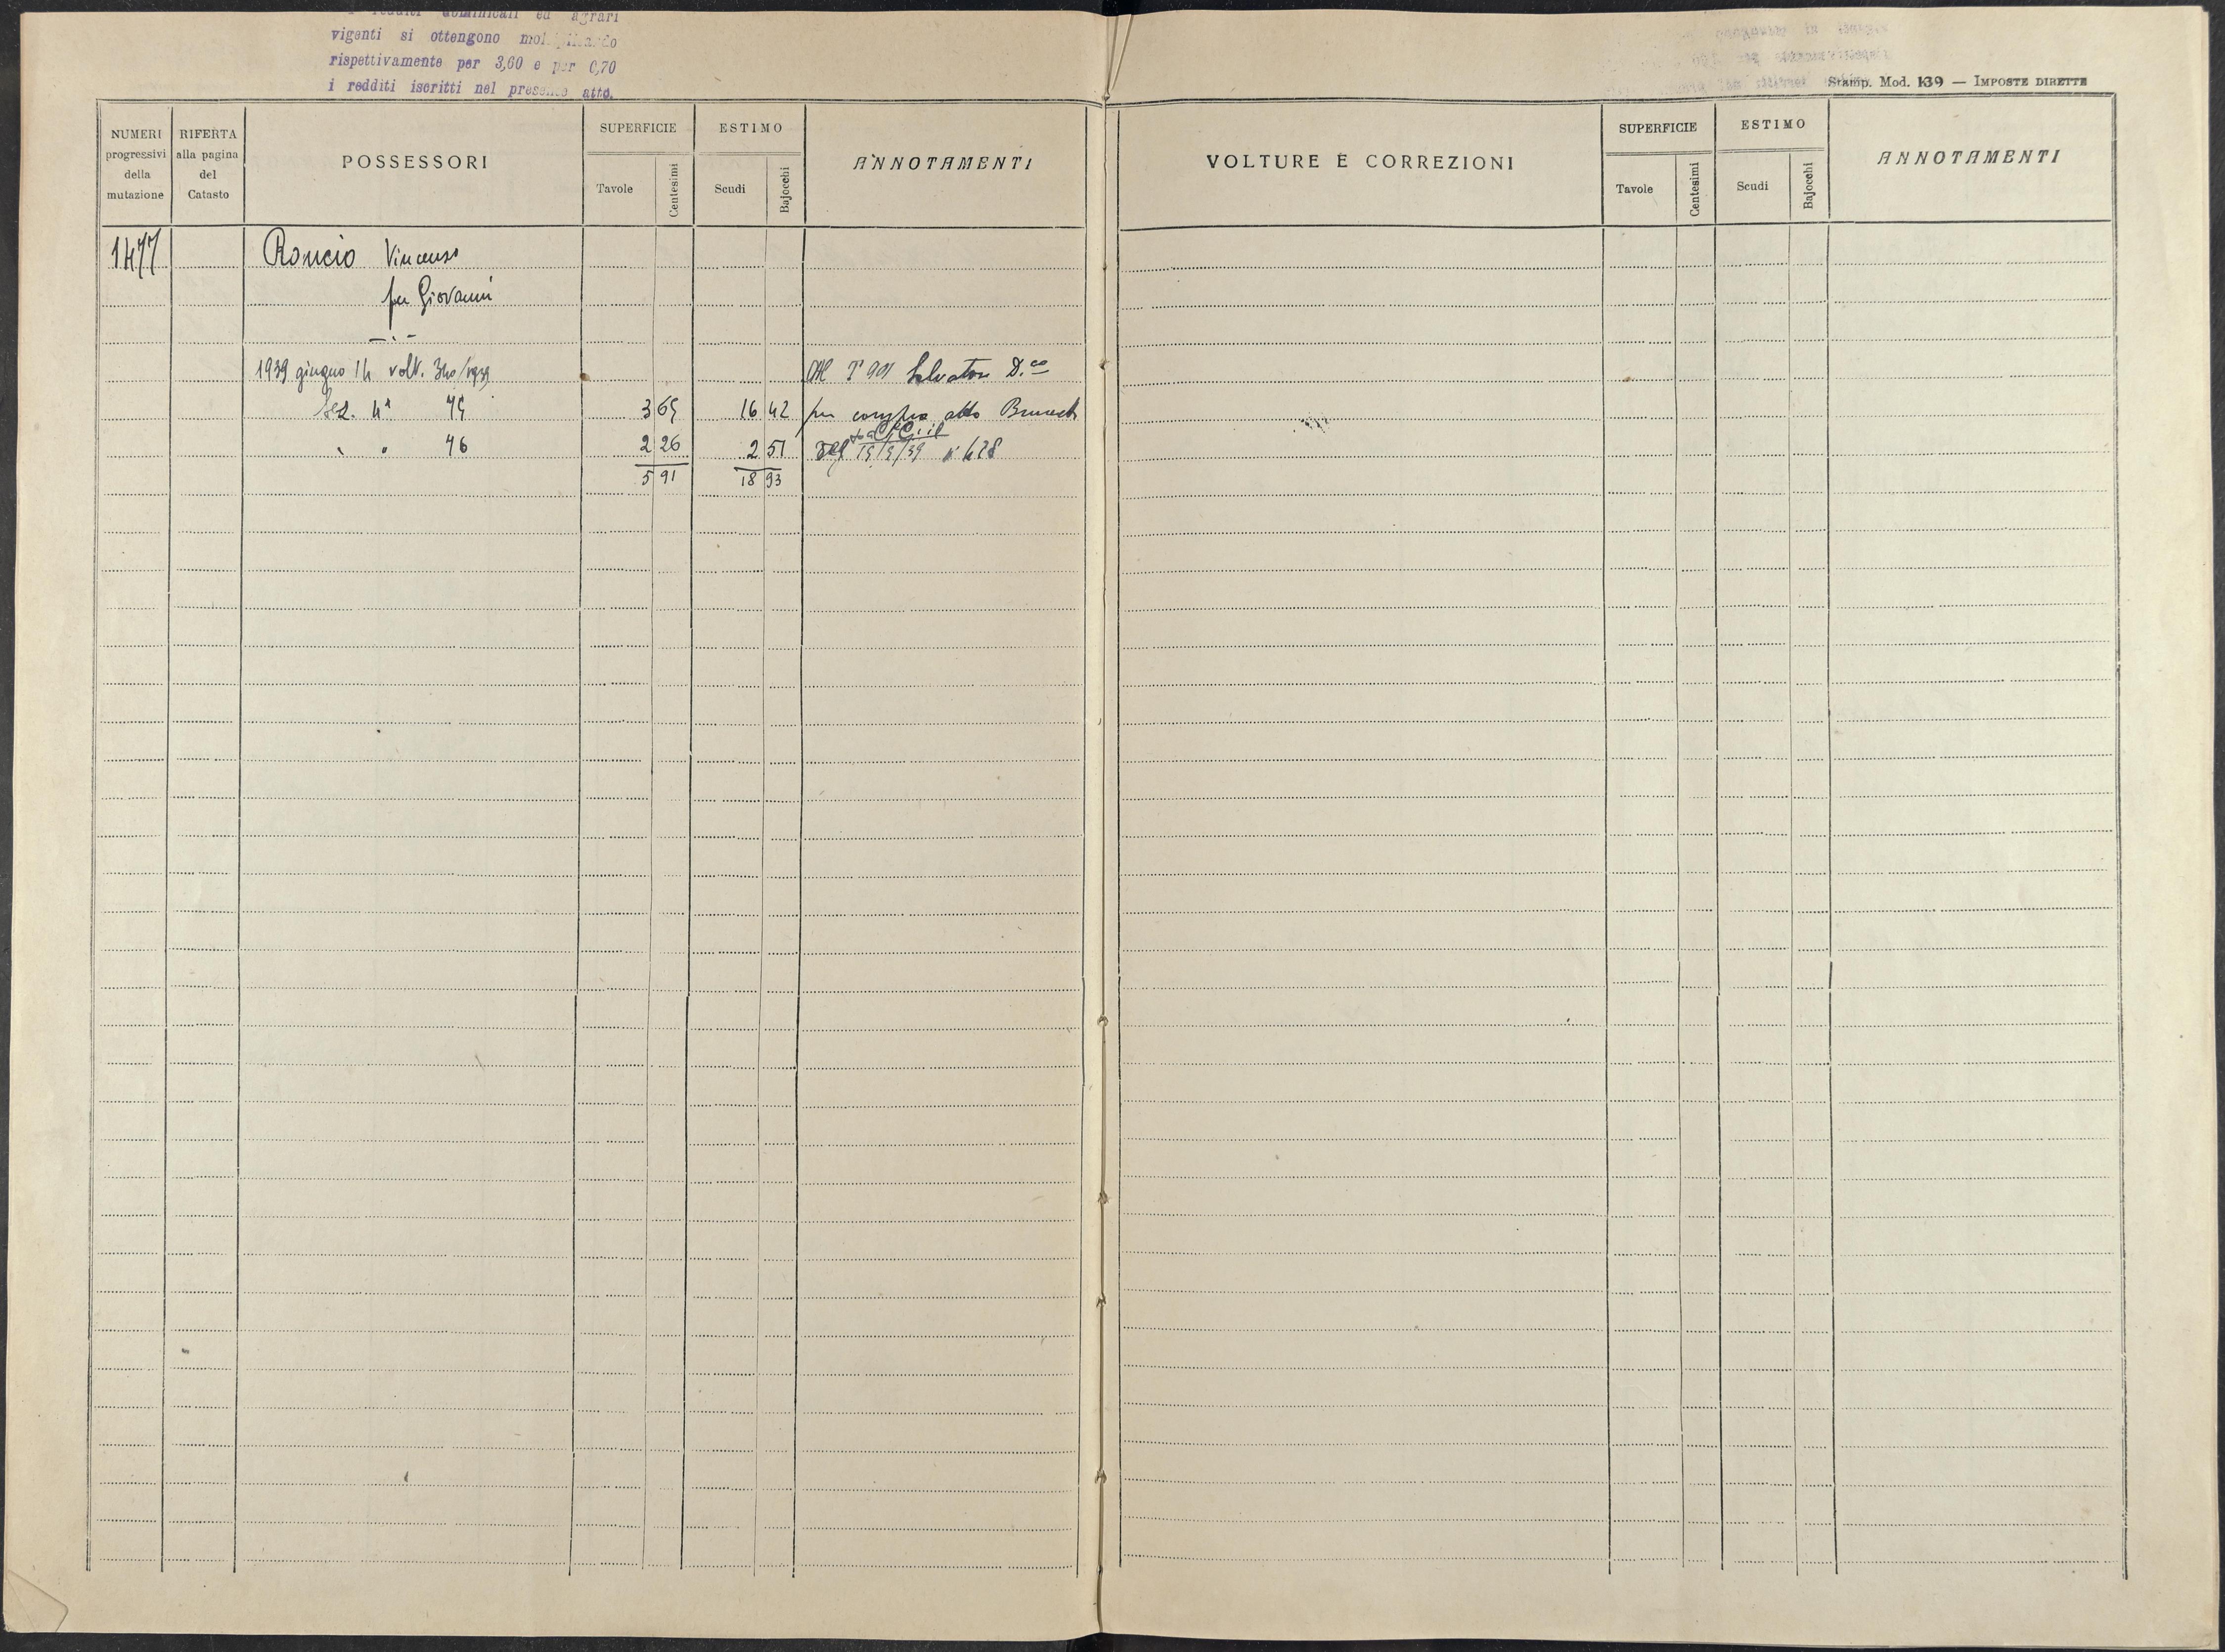 i redditi dominicali ed agrari
vigenti si ottengono
rispettivamente per 3,60 e per 0,70
i redditi iscritti nel presente atto.
Stamp. Mod. 139 — IMPOSTE DIRETTE
NUMERI progressivi della mutazione
RIFERTA alla pagina del Catasto
POSSESSORI
SUPERFICIE
Tavole
Centesimi
ESTIMO
Scudi
Bajocchi
ANNOTAMENTI
VOLTURE E CORREZIONI
SUPERFICIE
Tavole
Centesimi
ESTIMO
Scudi
Bajocchi
ANNOTAMENTI
1477 Roncio Vincenzo
fu Giovanni
1939 giugno 14 volt. 340/1939 Salvatore D.co
Sez. 4ª 75 3 65 16 42 per compra atto
" " 76 2 26 2 51 del 15/3/39 n 428
5 91 18 93